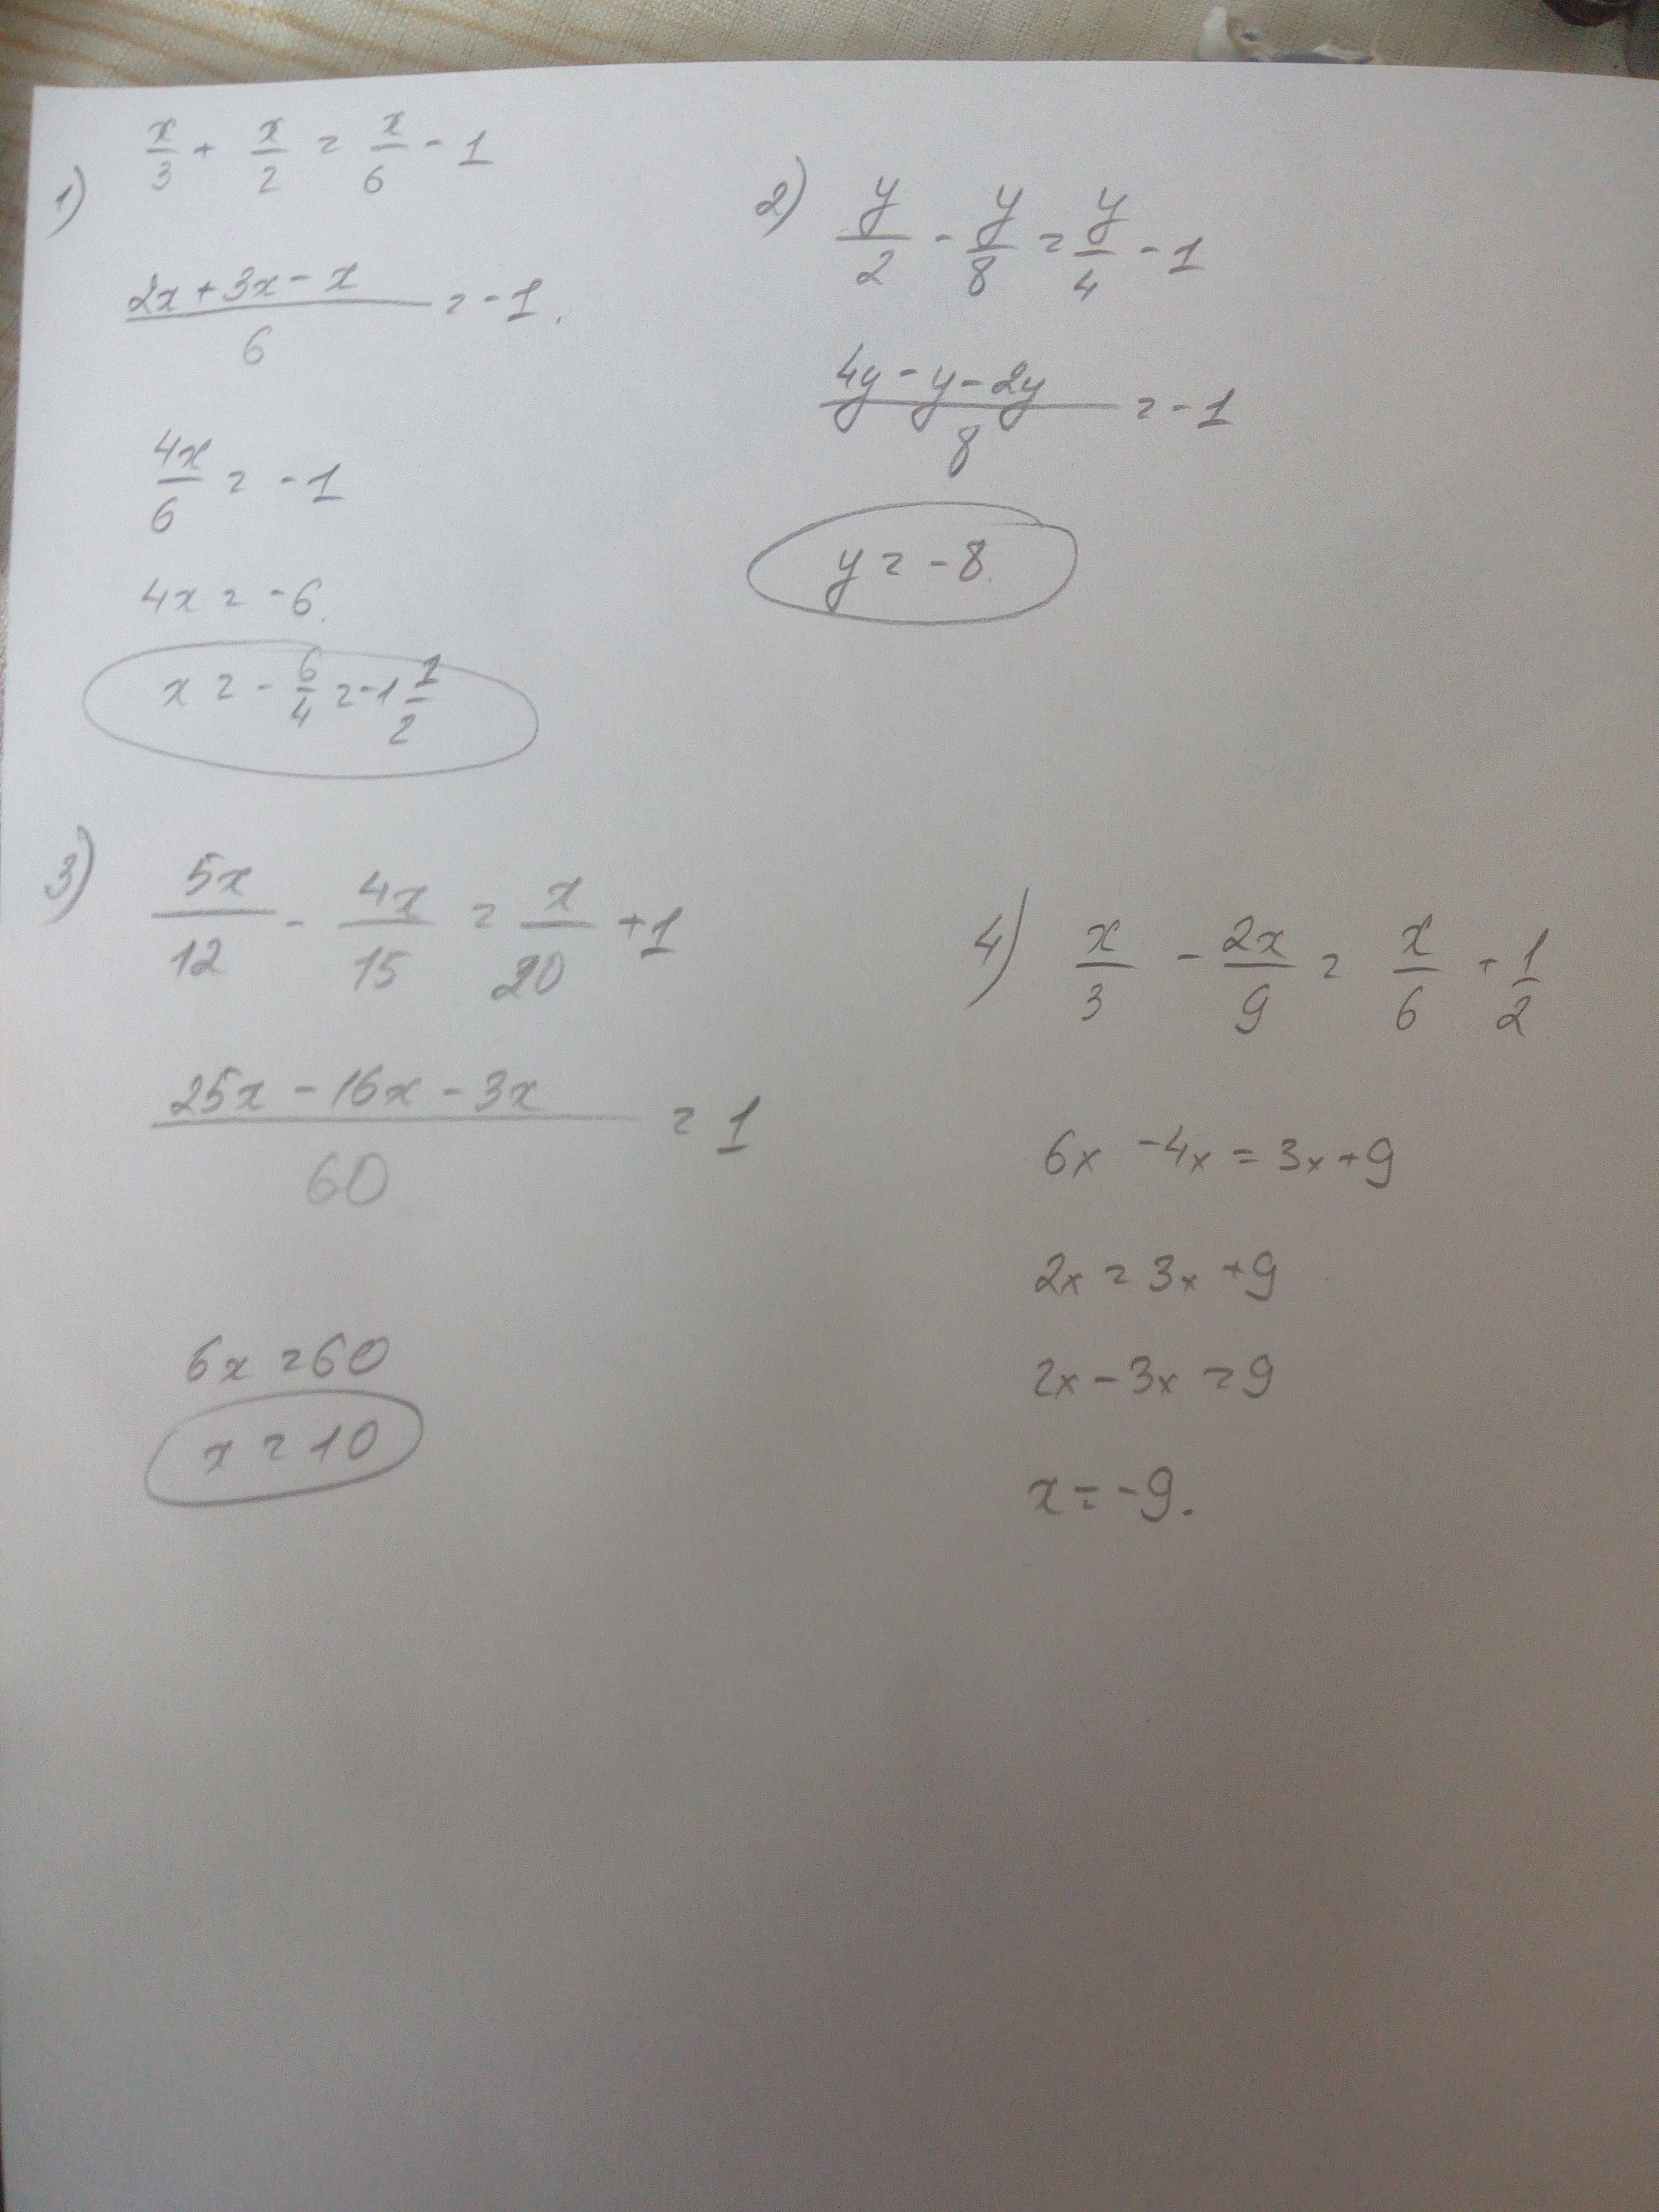 1) x/3 + x/2 = x/6 - 1
(2x + 3x - x)/6 = -1.
4x/6 = -1
4x = -6.
x = -6/4 = -1 1/2
2) y/2 - y/8 = y/4 - 1
(4y - y - 2y)/8 = -1
y = -8.
3) 5x/12 - 4x/15 = x/20 + 1
(25x - 16x - 3x)/60 = 1
6x = 60
x = 10
4) x/3 - 2x/9 = x/6 + 1/2
6x - 4x = 3x + 9
2x = 3x + 9
2x - 3x = 9
x = -9.